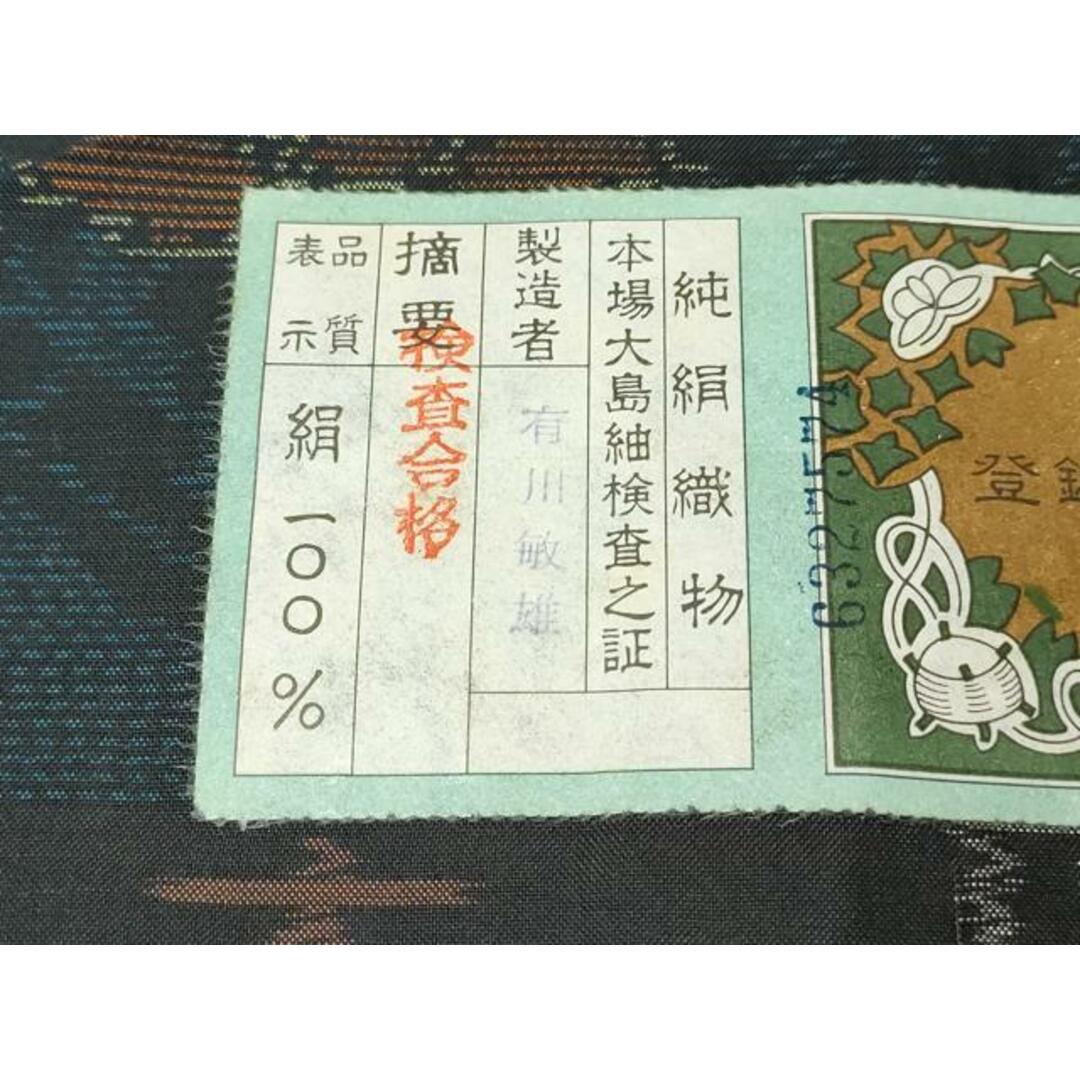 登
6327574
純絹織物
本場大島紬検査之証
製造者
有川敏雄
摘要
検査合格
品質
表示
絹一〇〇%